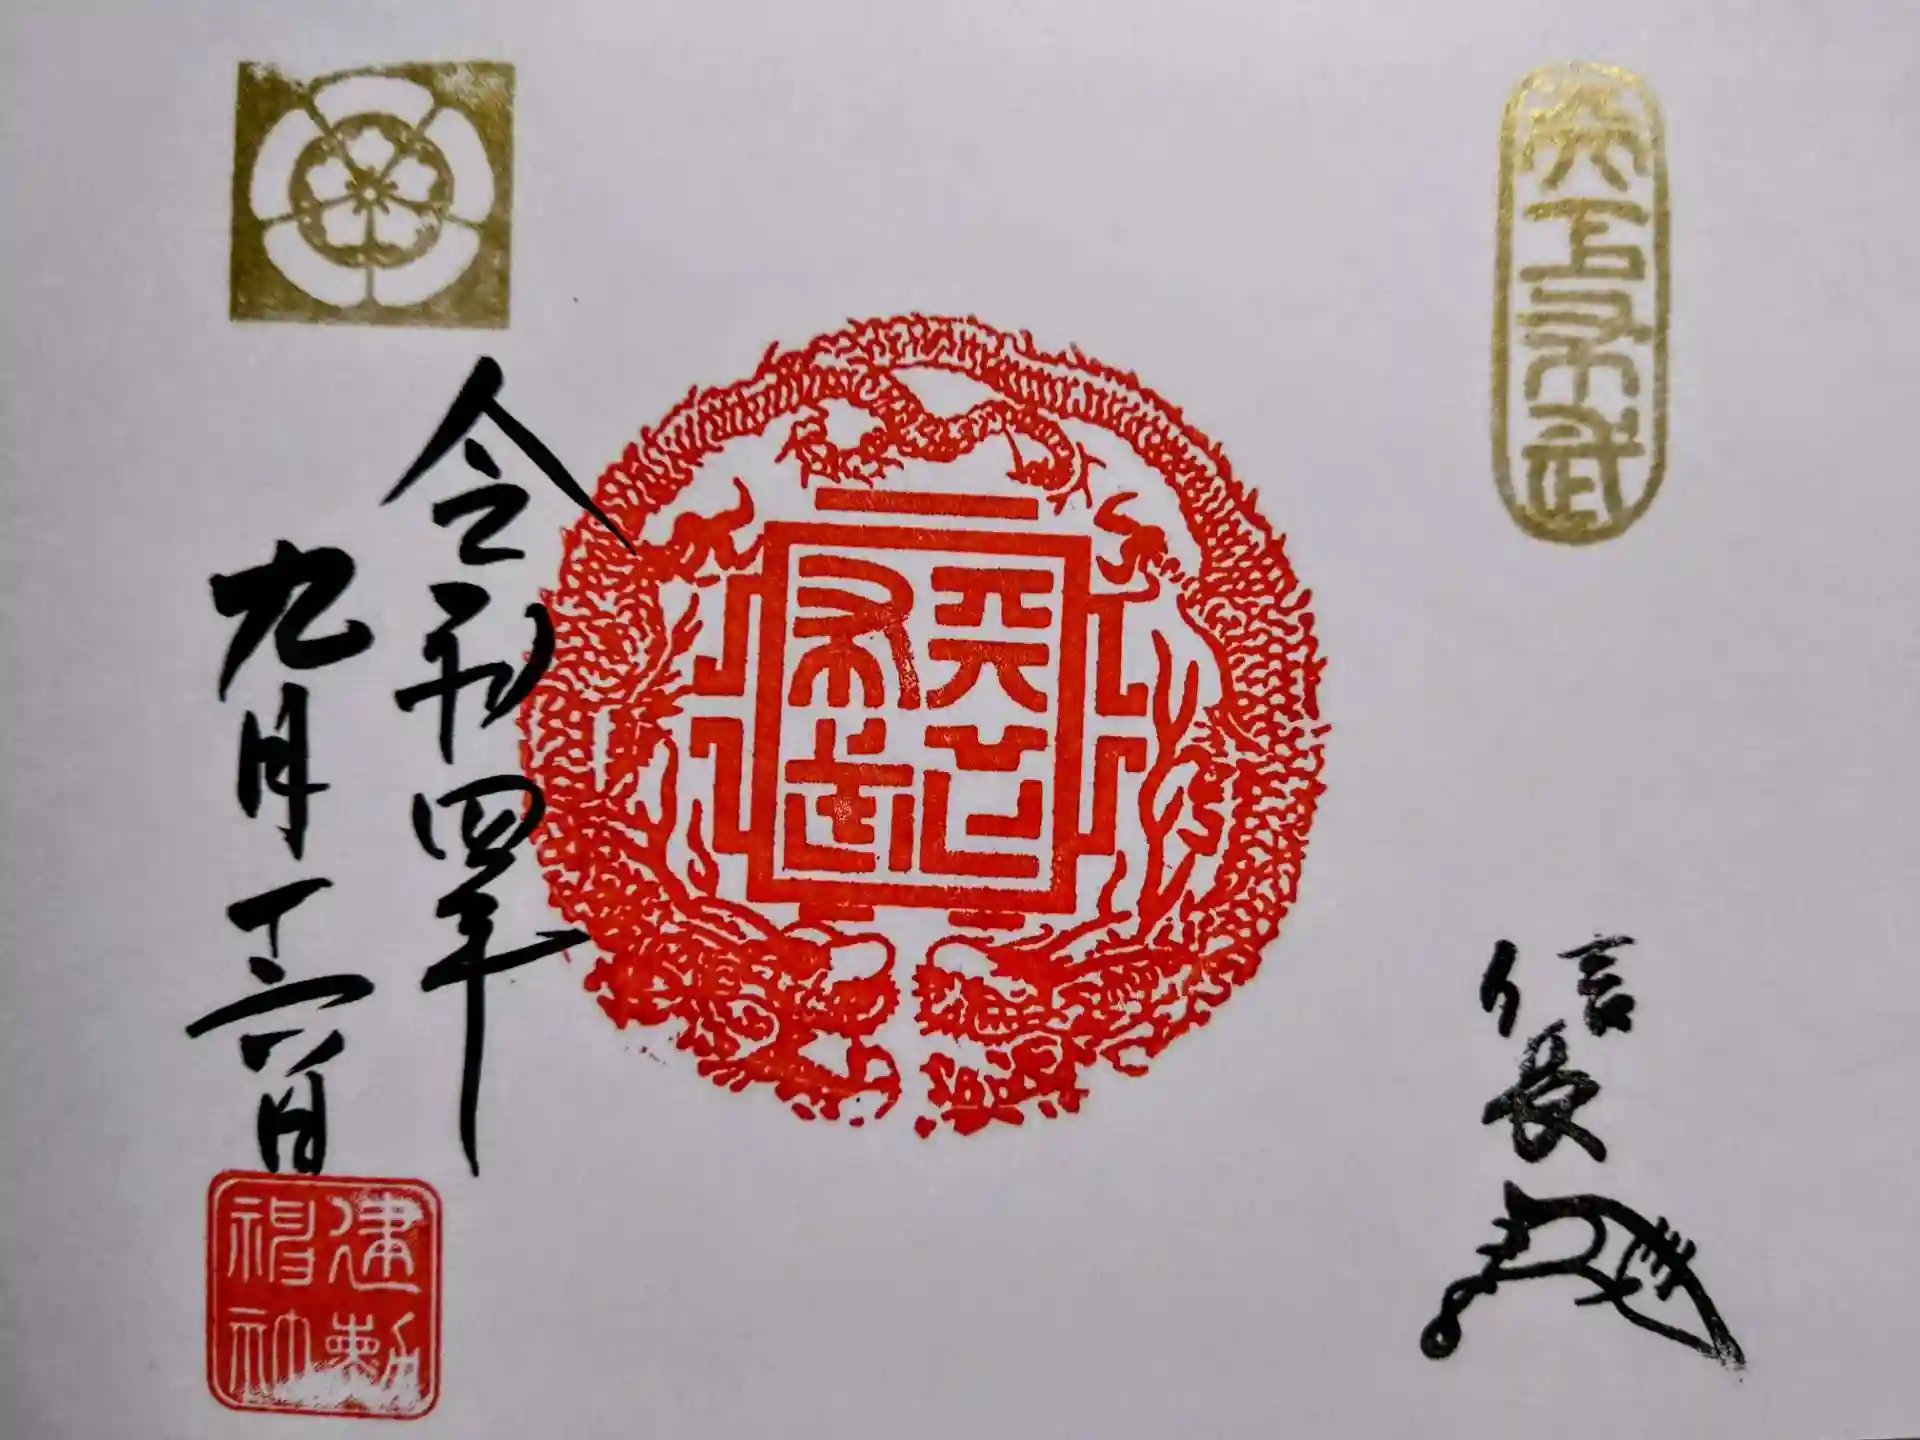 天下布武
信長
天下布武
令和四年
九月十六日
建勲神社